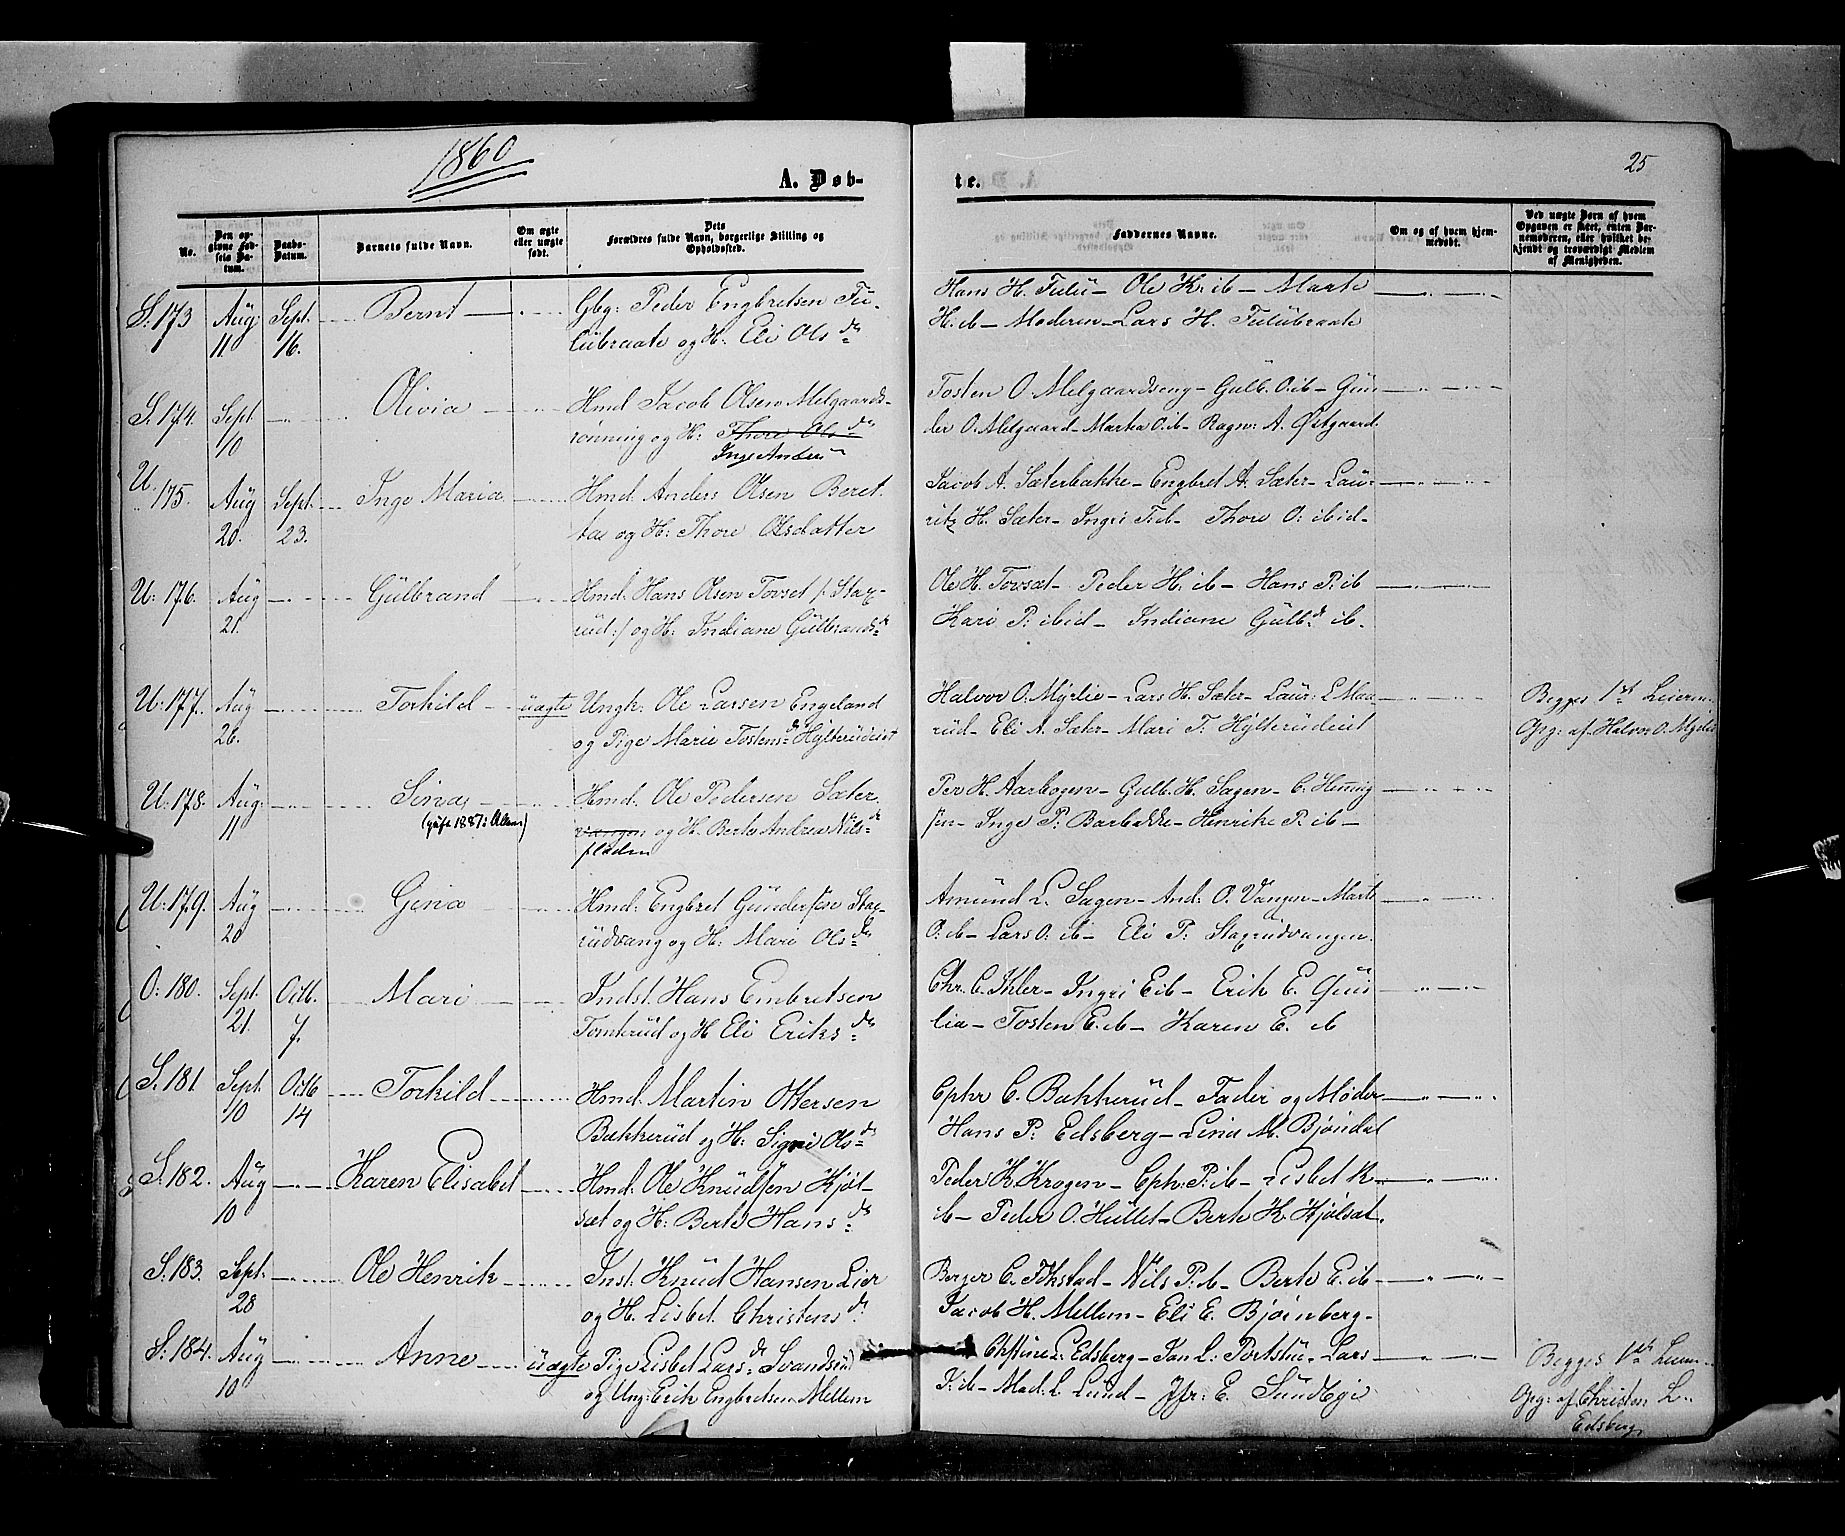 1860
25
A. Døb-
te.
No.
Den opgivne Fødsels Datum.
Daabs-Datum.
Barnets fulde Navn.
Om ægte eller uægte født.
Dets Forældres fulde Navn, borgerlige Stilling og Opholdssted.
Faddernes Navne.
Om og af hvem hjemmedøbt.
Ved uægte Børn af hvem Opgaven er skeet, enten Barnemoderen, eller hvilket bekjendt og troværdigt Medlem af Menigheden.
S: 173 Aug: 11 Sept. 16. Bernt
Gbg: Peder Engbretsen
og H. Eli Olsdr
Hans H. Ole K: ib – Marte
H. ib – Moderen – Lars H.
S. 174. Sept 10 Olivia
Hmd Jacob Olsen Melgaards-
rønning og H: Thore Olsdr
Tosten O. Melgaardseng – Gulb. O: ib – Gun-
der O. Melgaard – Marta O: ib – Ragn: A. Østgaard.
U. 175. Aug 20. Sept. 23. Inge Maria
Hmd. Anders Olsen
og H: Thore Olsdatter
Jacob A. Sæterbakke – Engbret A. Sæter – Lau-
ritz H. Sæter – Ingri T: ib – Thore O: ibid –
U: 176. Aug 21. Gulbrand
Hmd: Hans Olsen Tovset /: Stax-
rud :/ og H: Indiane Gulbrandsdr
Ole H. Tovsæt – Peder H. ib – Hans P: ib
Kari P: ibid – Indiane Gulbd ib –
U: 177. Aug 26. Torkild uægte
Ungk: Ole Larsen Engeland
og Pige Marie Tostensdr Hylterudeiet
Halvor O. Myrlie – Lars H. Sæter – Laur: L Maa-
rud – Eli A. Sæter – Mari T. Hylterudeiet
Begges 1st Leierm
Opg: af Halvor O. Myrlie
U: 178. Aug: 11 Sina
(gift 1887
Hmd. Ole Pedersen Sæter
vangen og H. Berte Andrea Nilsdr
fladen
Per H. Aarbogen – Gulb. H. Sagen – C. Henning
sen – Inge P: Barbakke – Henrike P. ib –
U: 179. Aug 20 Gina
Hmd: Engbret Gundersen Stax-
rudvang og H: Mari Olsdr
Amund L. Sagen – And: O. Vangen – Marte
O: ib – Lars O: ib – Eli P: Staxrudvangen.
O: 180. Sept. 21. Octb. 7. Mari
Indst: Hans Embretsen
Tomterud og H Eli Eriksdr
Chr. C. Ihler – Ingri E ib – Erik E.
lia – Tosten E. ib – Karen E. ib
S. 181. Sept. 10 Octb 14 Torkild
Hmd. Martin Ottersen
Bakkerud og H: Signe Olsdr
Cphr C. Bakkerud – Fader og Moder
Hans P: Edsberg – Lina M. Bjøndal
S. 182. Aug 10 Karen Elisabet
Hmd: Ole Knudsen Kjøl-
sæt og H: Berte Hansdr
Peder K. Krogen – Cph: P: ib – Lisbet K
ib – Peder O. Hullet – Berte K. Kjølsæt.
S. 183. Sept. 28 Ole Henrik
Inst. Knud Hansen Lier
og H. Lisbet Christensdr
Berger C. Fokstad – Nils P: ib – Berte E. ib
Jacob H. Mellem – Eli E. Bjørnberg –
S. 184. Aug 10 Anne uægte
Pige Lisbet Larsdr
og Ung: Erik Engbretsen Mellem
L: Edsberg – Jan L: Portstu – Lars
ib – Mad: L. Lund – Jfr: E. Sundbye
Begges 1st
Opg: af Christen L.
Edsberg